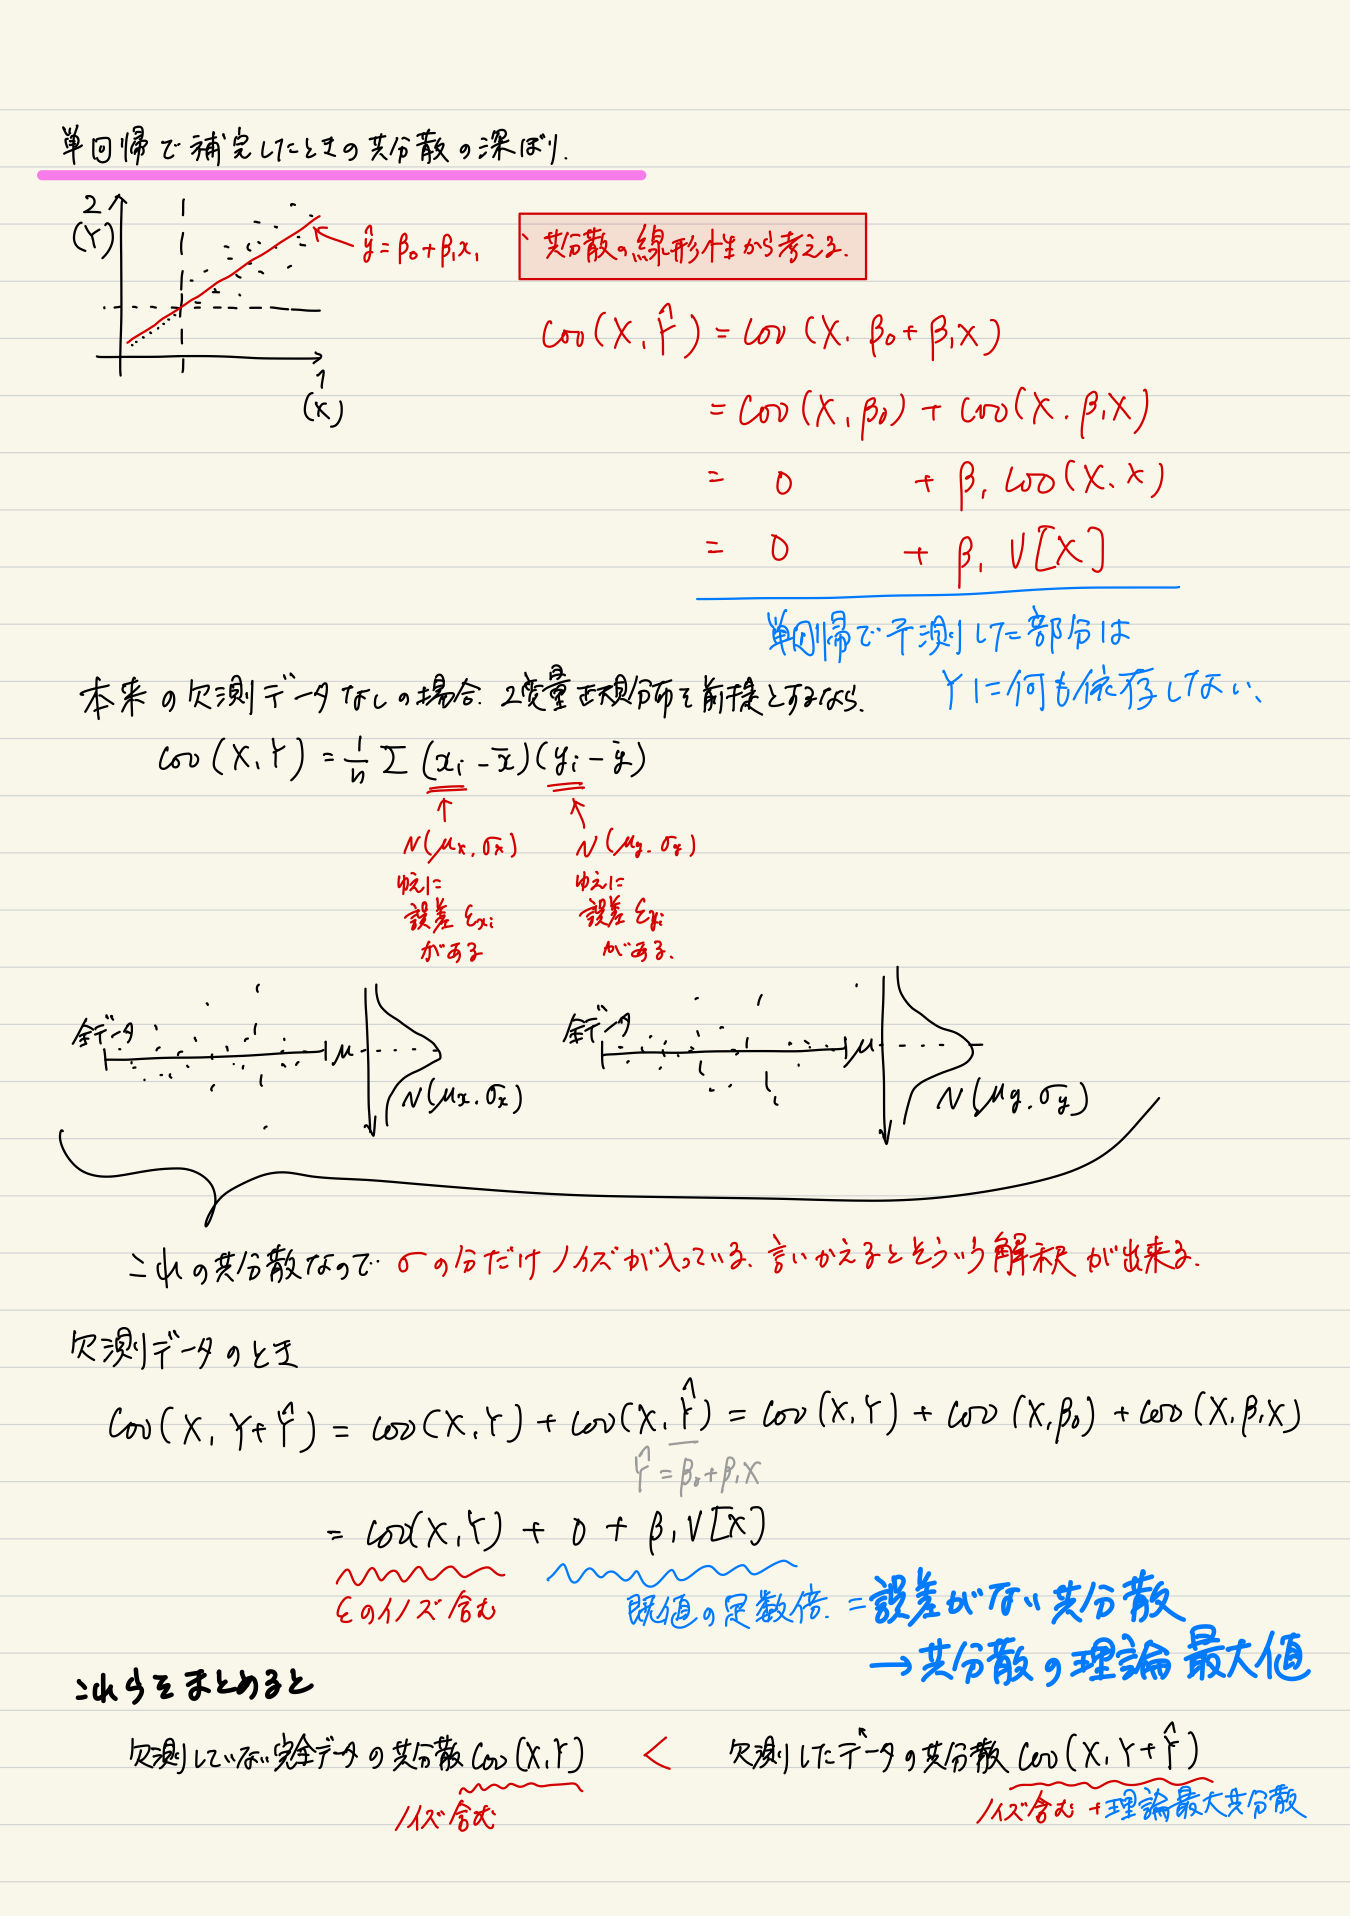 単回帰で補完したときの共分散の深ぼり.
2
(Y)
ŷ = β₀ + β₁x₁
1
(X)
共分散の線形性から考える.
Cov(X, Ŷ) = Cov(X, β₀ + β₁X)
= Cov(X, β₀) + Cov(X, β₁X)
= 0 + β₁ Cov(X, X)
= 0 + β₁ V[X]
単回帰で予測した部分は
Yに何も依存しない、
本来の欠測データなしの場合. 2変量正規分布を前提とするなら.
Cov(X, Y) = 1/n Σ (xᵢ - x̄)(yᵢ - ȳ)
N(μx, σx) N(μy, σy)
ゆえに ゆえに
誤差 εxi 誤差 εyi
がある がある.
全データ μ N(μx, σx)
全データ μ N(μy, σy)
これの共分散なので σの分だけノイズが入っている. 言いかえるとそういう解釈が出来る.
欠測データのとき
Cov(X, Y+Ŷ) = Cov(X, Y) + Cov(X, Ŷ) = Cov(X, Y) + Cov(X, β₀) + Cov(X, β₁X)
Ŷ = β₀ + β₁X
= Cov(X, Y) + 0 + β₁V[X]
εのイノズ含む
既値の定数倍. = 誤差がない共分散
→ 共分散の理論最大値
これらをまとめると
欠測していない完全データの共分散 Cov(X, Y) < 欠測したデータの共分散 Cov(X, Y+Ŷ)
ノイズ含む ノイズ含む + 理論最大共分散